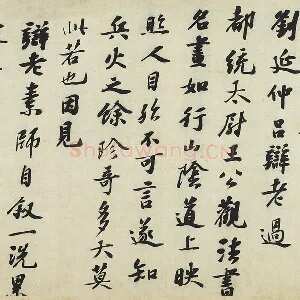 劉延仲呂辯老過
都統太尉王公觀法書
名畫如行山陰道上映
照人目殆不可言遂知
兵火之餘珍奇多大莫
此若也因見
辯老素師自敘一洗累